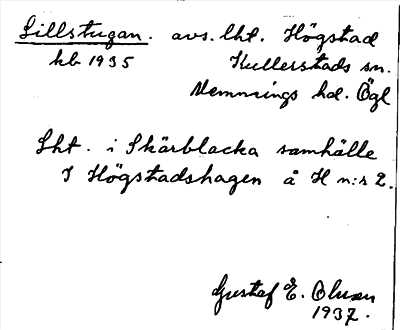 Lillstugan. avs. lht. Högstad
kb 1935 Kullerstads sn.
Memmings hd. Ögl
Lht. i Skärblacka samhälle
I Högstadshagen å H n:r 2.
Gustaf E. Olsson
1937.